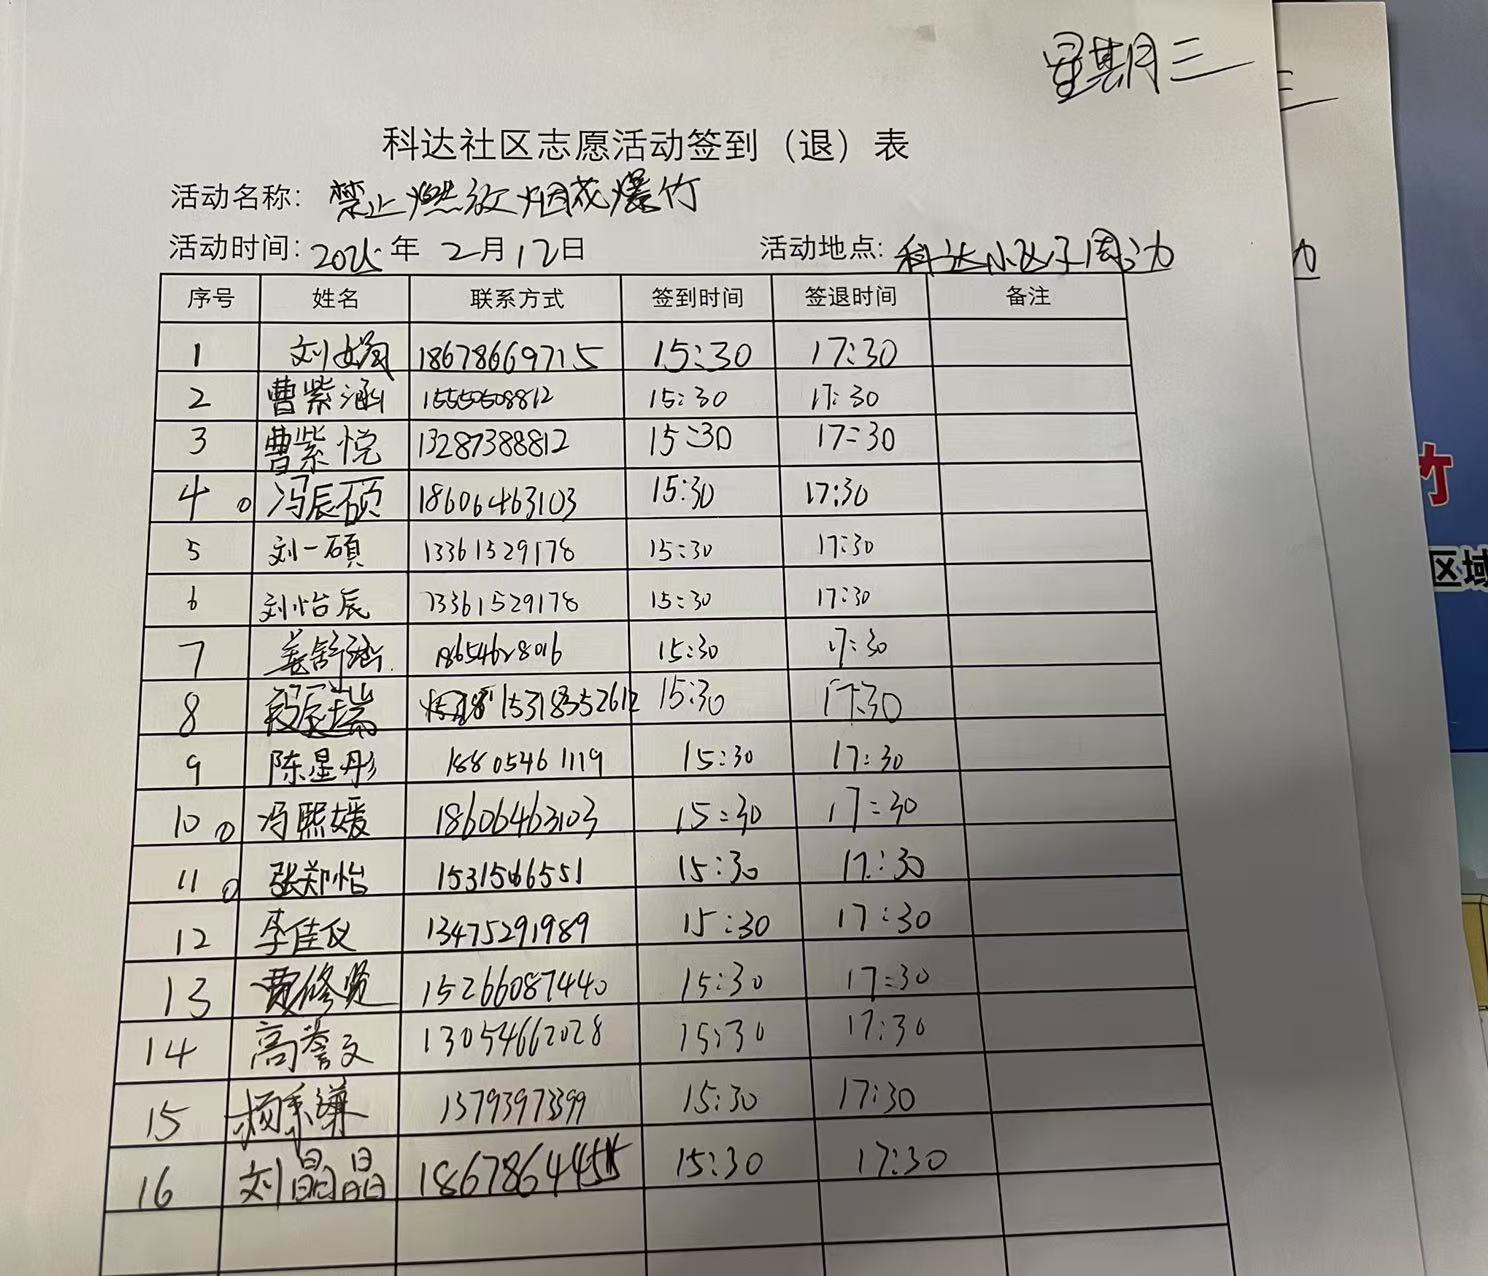 星期三
科达社区志愿活动签到（退）表
活动名称：禁止燃放烟花爆竹
活动时间：2025年 2月12日 活动地点：科达小区及周边
序号 姓名 联系方式 签到时间 签退时间 备注
1 刘娟 18678669715 15:30 17:30
2 曹紫涵 15550508812 15:30 17:30
3 曹紫悦 13287388812 15:30 17:30
4 冯辰硕 18606463103 15:30 17:30
5 刘一硕 13361529178 15:30 17:30
6 刘怡辰 13361529178 15:30 17:30
7 姜舒涵 18654628016 15:30 17:30
8 15318352612 15:30 17:30
9 陈星彤 18805461119 15:30 17:30
10 冯熙媛 18606463103 15:30 17:30
11 张郑怡 1531566551 15:30 17:30
12 李佳仪 13475291989 15:30 17:30
13 费修贤 15266087440 15:30 17:30
14 高誉文 13054662028 15:30 17:30
15 15:30 17:30
16 刘晶晶 15:30 17:30
竹
区域